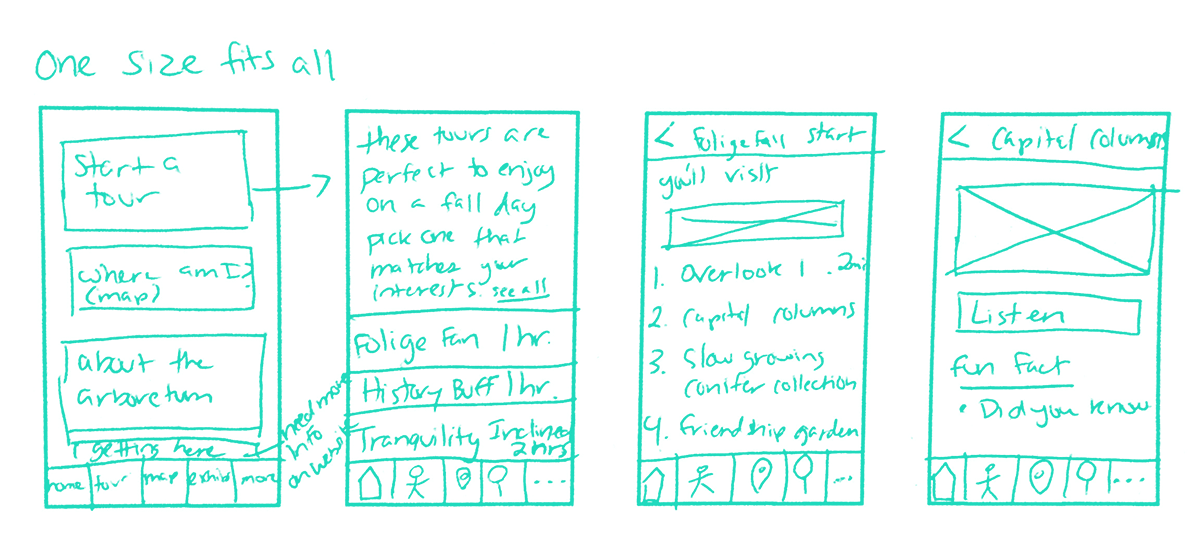 One size fits all
Start a
tour
where am I?
(map)
about the
arboretum
getting here
home tour map exhibit more
need more
info
on website
these tours are
perfect to enjoy
on a fall day
pick one that
matches your
interests. see all
Folige Fan 1 hr.
History Buff 1 hr.
Tranquility Inclined
2 hrs
...
< Folige Fall start
you'll visit
1. Overlook 1 . 2mi
2. Capital columns
3. Slow growing
conifer collection
4. friendship garden
...
< Capital columns
Listen
fun fact
• Did you know
...